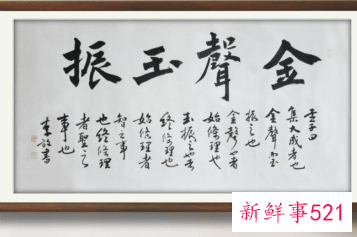 金聲玉振
孟子曰
集大成者也
金聲而玉
振之也
金聲也者
始條理也
玉振之也者
終條理也
始條理者
智之事
也終條理
者聖之
事也
新鲜事521